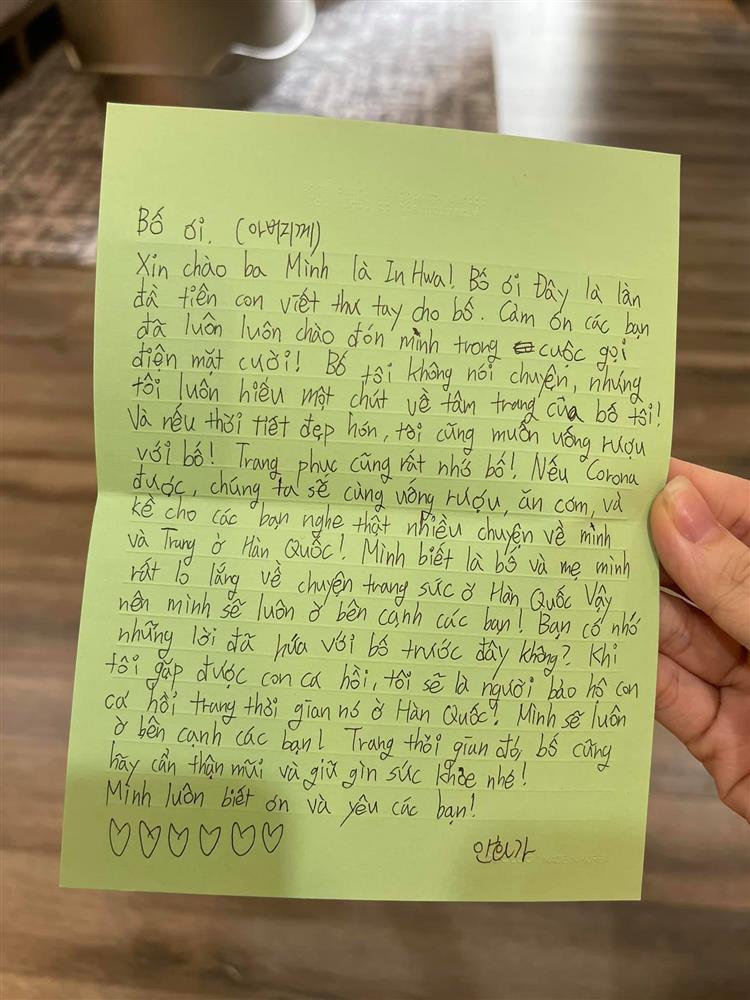 Bố ơi. (아버지께)
Xin chào ba Mình là In Hwa! Bố ơi Đây là lần
đầ tiên con viết thư tay cho bố. Cảm ơn các bạn
đã luôn luôn chào đón mình trong cuộc gọi
điện mặt cười! Bố tôi không nói chuyện, nhưng
tôi luôn hiểu một chút về tâm trang của bố tôi!
Và nếu thời tiết đẹp hơn, tôi cũng muốn uống rượu
với bố! Trang phục cũng rất nhớ bố! Nếu Corona
được, chúng ta sẽ cùng uống rượu, ăn cơm, và
kể cho các bạn nghe thật nhiều chuyện về mình
và Trang ở Hàn Quốc! Mình biết là bố và mẹ mình
rất lo lắng về chuyện trang sức ở Hàn Quốc Vậy
nên mình sẽ luôn ở bên cạnh các bạn! Bạn có nhớ
những lời đã hứa với bố trước đây không? Khi
tôi gặp được con cá hồi, tôi sẽ là người bảo hộ con
cá hồi trang thời gian nó ở Hàn Quốc! Mình sẽ luôn
ở bên cạnh các bạn! Trang thời gian đó, bố cũng
hãy cẩn thận mũi và giữ gìn sức khỏe nhé!
Mình luôn biết ơn và yêu các bạn!